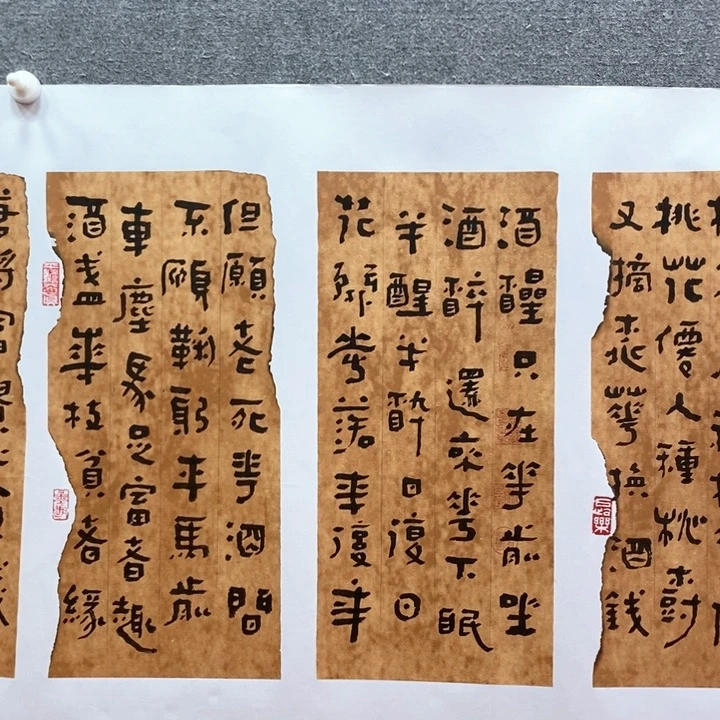 桃花僊人種桃樹
又摘桃華換酒錢
酒醒只在華前坐
酒醉還來華下眠
半醒半醉日復日
花華落年復年
但願老死華酒間
不願鞠躬車馬前
車塵馬足富者趣
酒盞華枝貧者緣